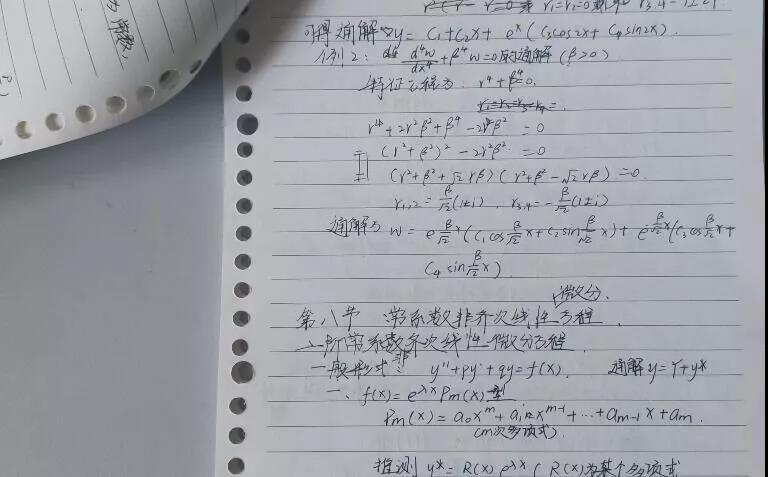 为常数,
r₁=r₂=0 r₃,₄=1±2i
可得通解为y= C₁+C₂x+ eˣ(C₃cos2x+ C₄sin2x).
例2: d⁴w/dx⁴+β⁴w=0的通解(β>0)
特征方程为: r⁴+β⁴=0.
r₁=r₂=r₃=r₄=
r⁴+2r²β²+β⁴-2r²β²=0
(r²+β²)²-2r²β²=0
(r²+β²+√2rβ)(r²+β²-√2rβ)=0.
r₁,₂=β/√2(1±i), r₃,₄=-β/√2(1±i)
通解为 w= e^(β/√2 x)(C₁cosβ/√2 x+C₂sinβ/√2 x)+ e^(-β/√2 x)(C₃cosβ/√2 x+
C₄sinβ/√2 x).
微分.
第八节 常系数非齐次线性方程.
二阶常系数齐次线性微分方程.
非
一般形式: y''+py'+qy=f(x). 通解y=Y+y*
一、f(x)=e^(λx)Pm(x)型
Pm(x)=a₀xᵐ+a₁xᵐ⁻¹+…+aₘ₋₁x+aₘ.
(m次多项式).
推测 y*=R(x)e^(λx)(R(x)为某个多项式